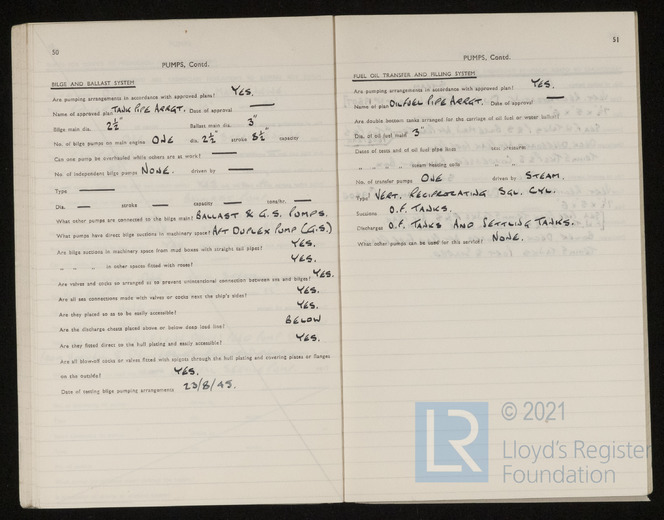 50
PUMPS, Contd.
BILGE AND BALLAST SYSTEM
Are pumping arrangements in accordance with approved plans? YES.
Name of approved plan TANK PIPE ARRGT. Date of approval —
Bilge main dia. 2½" Ballast main dia. 3"
No. of bilge pumps on main engine ONE dia. 2½" stroke 8½" capacity
Can one pump be overhauled while others are at work? —
No. of independent bilge pumps NONE. driven by —
Type —
Dia. — stroke — capacity — tons/hr. —
What other pumps are connected to the bilge main? BALLAST & G.S. PUMPS.
What pumps have direct bilge suctions in machinery space? AFT DUPLEX PUMP (G.S.)
Are bilge suctions in machinery space from mud boxes with straight tail pipes? YES.
" " " in other spaces fitted with roses? YES.
Are valves and cocks so arranged as to prevent unintentional connection between sea and bilges? YES.
Are all sea connections made with valves or cocks next the ship's sides? YES.
Are they placed so as to be easily accessible? YES.
Are the discharge chests placed above or below deep load line? BELOW
Are they fitted direct to the hull plating and easily accessible? YES.
Are all blow-off cocks or valves fitted with spigots through the hull plating and covering plates or flanges
on the outside? YES.
Date of testing bilge pumping arrangements 23/8/45.
51
PUMPS, Contd.
FUEL OIL TRANSFER AND FILLING SYSTEM
Are pumping arrangements in accordance with approved plan? YES.
Name of plan OILFUEL PIPE ARRGT. Date of approval —
Are double bottom tanks arranged for the carriage of oil fuel or water ballast
Dia. of oil fuel main 3"
Dates of tests and of oil fuel pipe lines test pressures
" " " steam heating coils
No. of transfer pumps ONE driven by STEAM.
Type VERT. RECIPROCATING SGL. CYL.
Suctions O.F. TANKS.
Discharges O.F. TANKS AND SETTLING TANKS.
What other pumps can be used for this service? NONE.
LR
© 2021
Lloyd's Register
Foundation